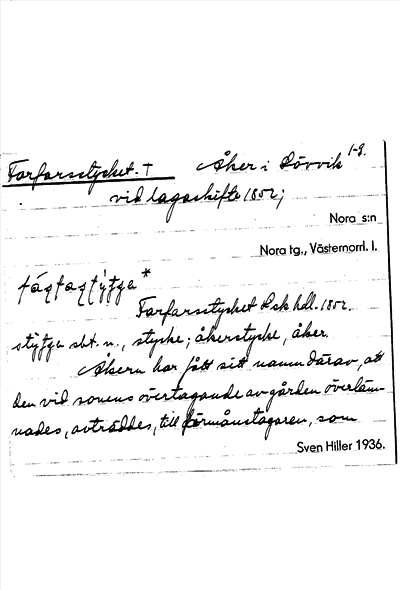 Farfarsstycket. † Åker i Rövvik 1-9.
vid lagaskifte 1852;
Nora s:n
Nora tg., Västernorrl. l.
Farfarsstycket Lsk hdl. 1852.
sbt. n., stycke; åkerstycke, åker.
Åkern har fått sitt namn därav, att
den vid sonens övertagande av gården överläm-
nades, avträddes, till förmånstagaren, som
Sven Hiller 1936.